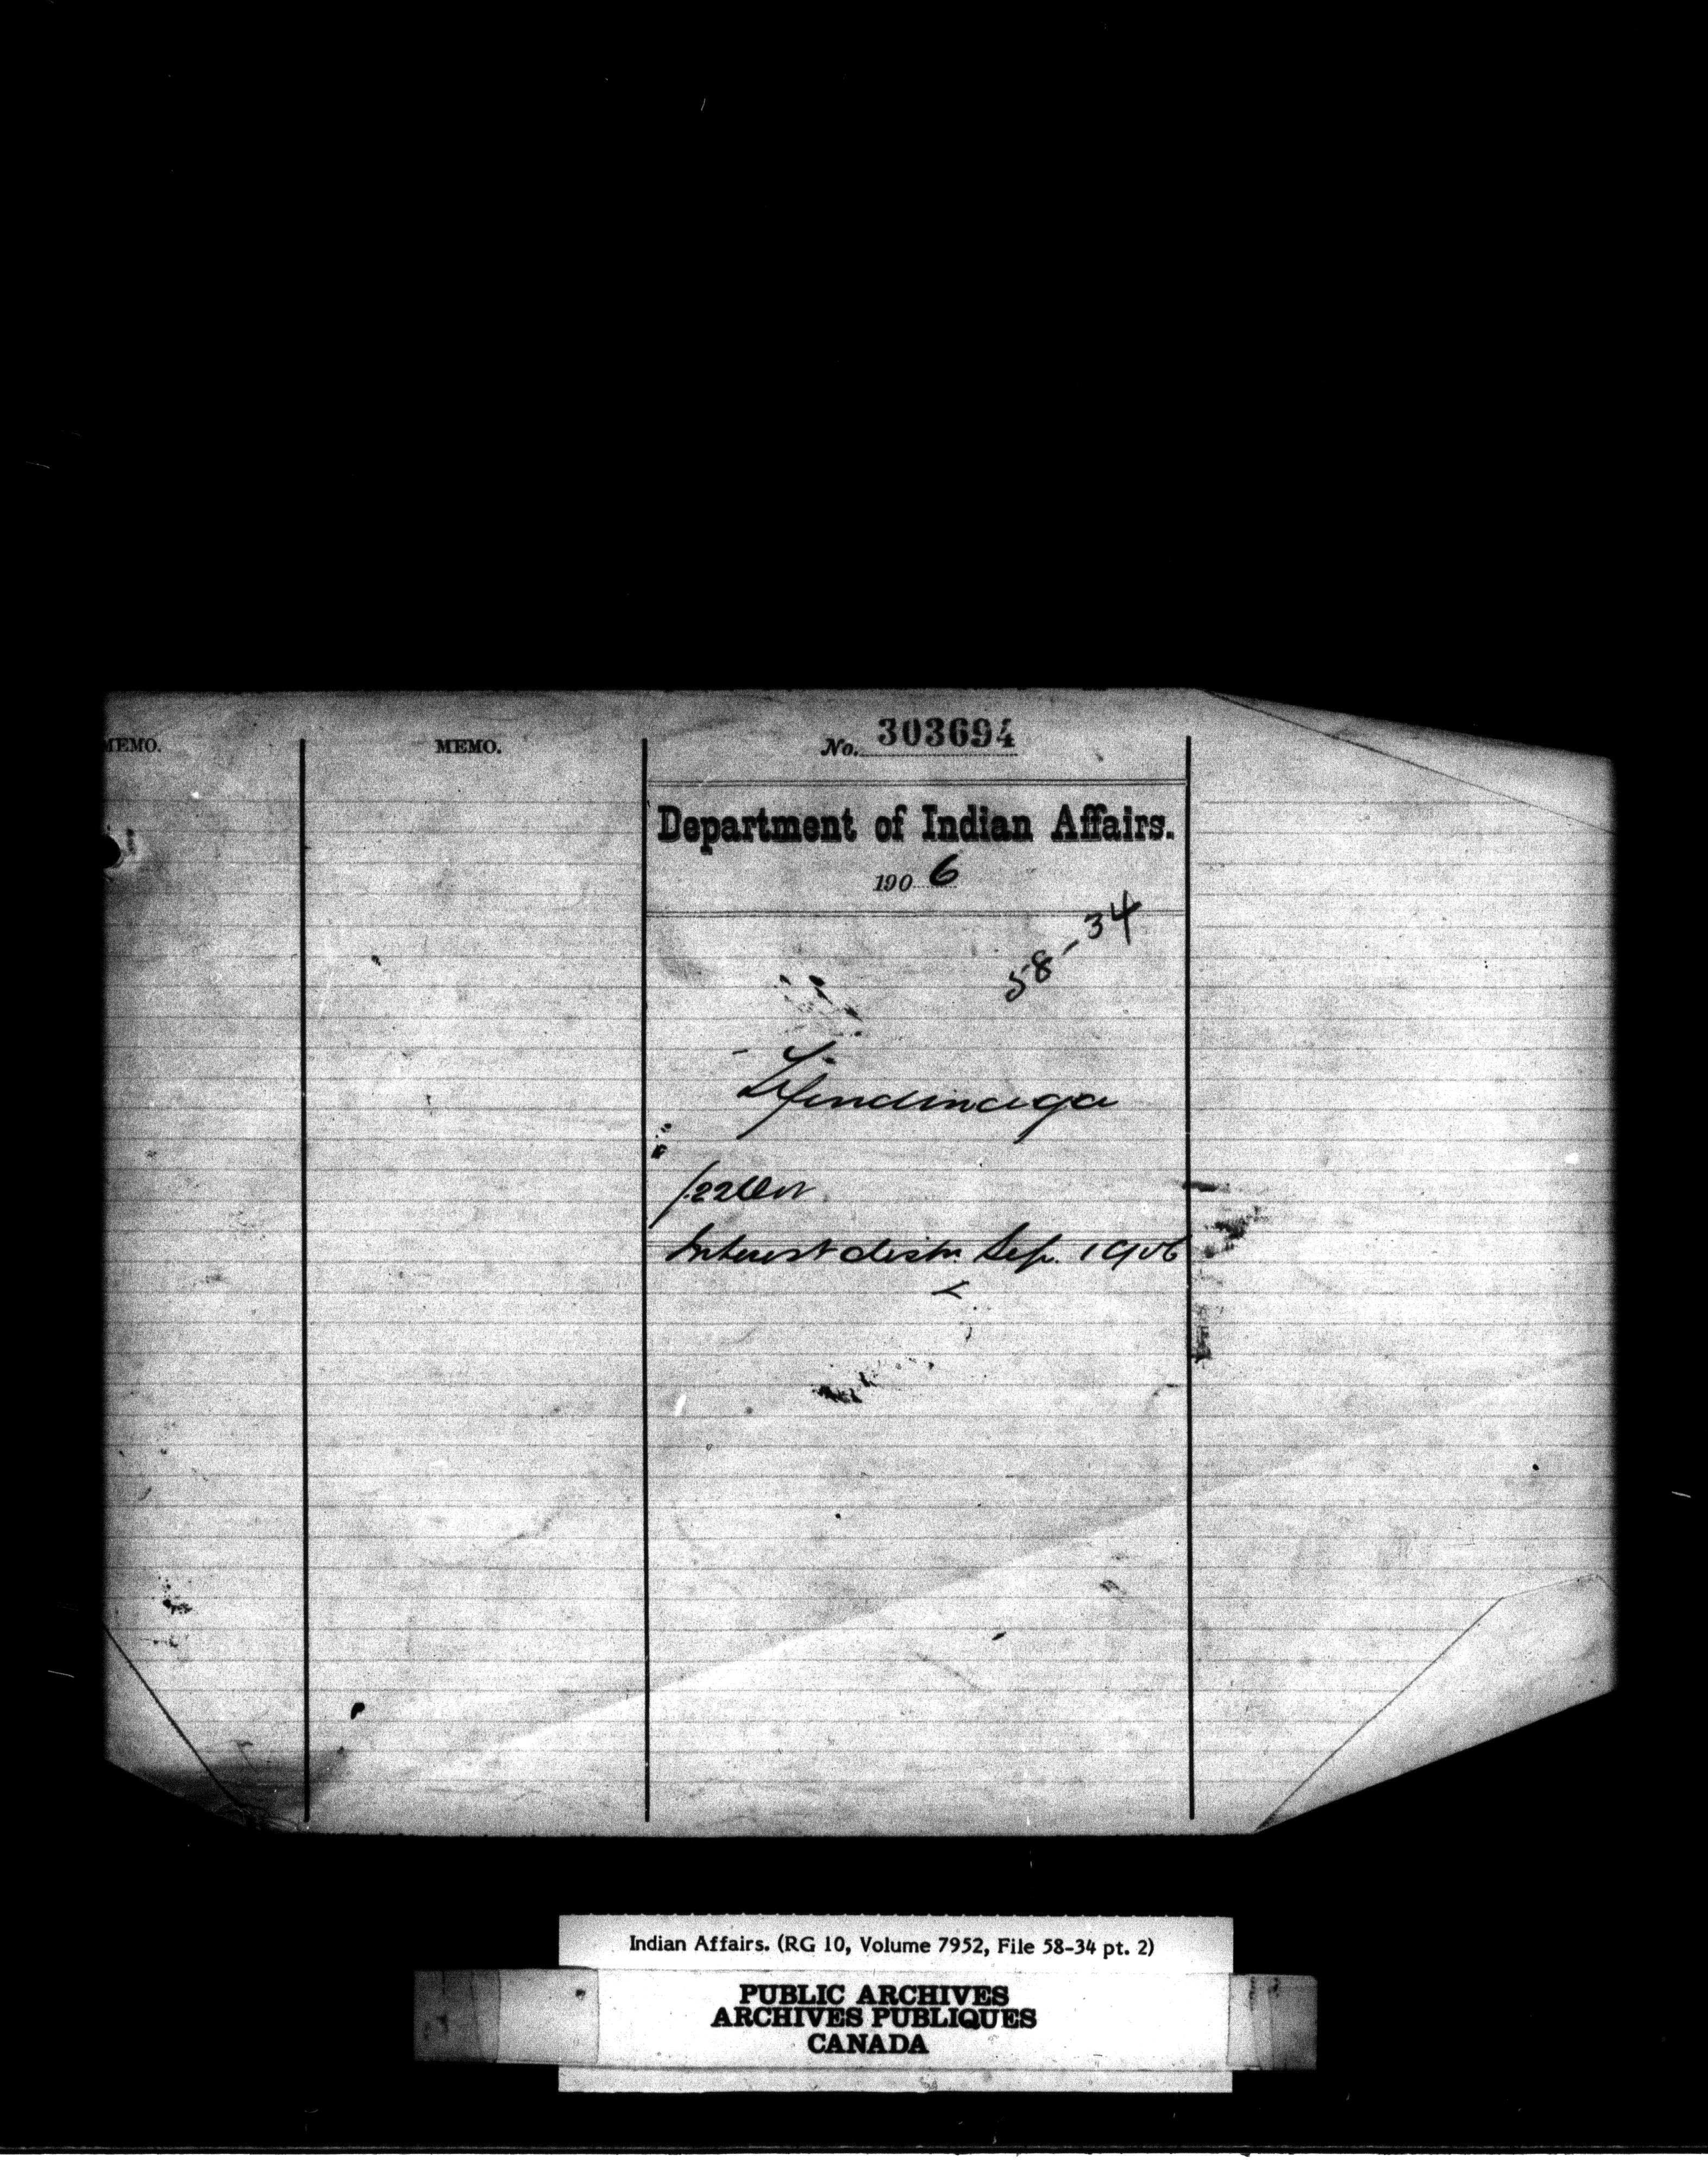 MEMO.
MEMO.
No. 303694
Department of Indian Affairs.
1906
58-34
Tyendinaga
Interest distn. Sep. 1906
Indian Affairs. (RG 10, Volume 7952, File 58-34 pt. 2)
PUBLIC ARCHIVES
ARCHIVES PUBLIQUES
CANADA